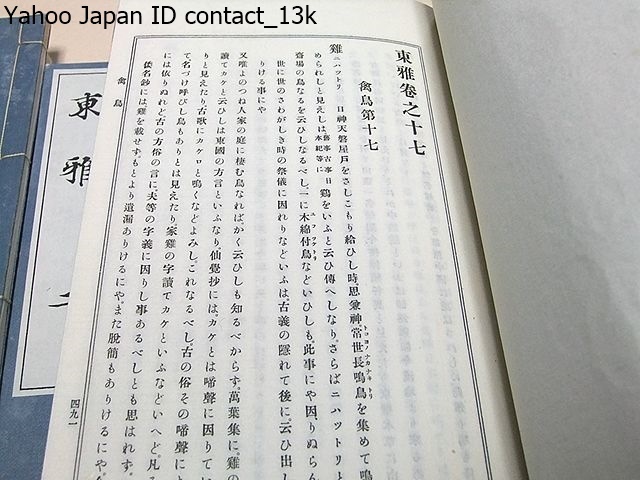 Yahoo Japan ID contact_13k
東雅卷之十七
禽鳥第十七
雞 ニハツトリ 日神天磐屋戸をさしこもり給ひし時、思兼神、常世長鳴鳥を集めて鳴
トコヨノナカナキトリ
められしと見えしは、舊事古事日本紀等に 鷄をいふと云ひ傳へしなり。さらばニハツトリと
齋場の鳥なるを云ひしなるべし。一に木綿付鳥などいひしも、此事にや因りぬらん
ユフツケトリ
世に世のさわがしき時の祭儀に因れりなどいふは、古義の隱れて後に、云ひ出し
りける事にや
又唯よのつね人家の庭に棲む鳥なればかく云ひしも知るべからず。萬葉集に、雞の
讀てカケと云ひしは東國の方言といふなり。仙覺抄には、カケとは啼聲に因りてい
りと見えたり。古歌にカケロと鳴くなどよみし、これなるべし。古の俗その啼聲にと
て名づけ呼びし鳥もありとは見えたり。家雞の字讀てカケといふなどいへど、凡そ
には依りぬれど、古の方俗の言に、夫等の字義に因りし事あるべしとも思はれず。
倭名鈔には雞を載せず。もとより遺漏ありけるにや、また脱簡もありけるにや。
禽鳥
四九一
東雅